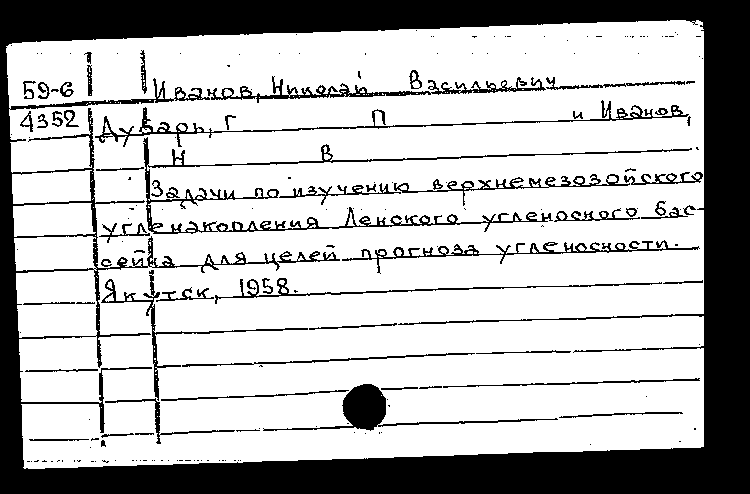 59-6 Иванов, Николай Васильевич
4352 Дубарь, Г П и Иванов,
Н В
Задачи по изучению верхнемезозойского
угленакопления Ленского угленосного бас-
сейна для целей прогноза угленосности.
Якутск, 1958.